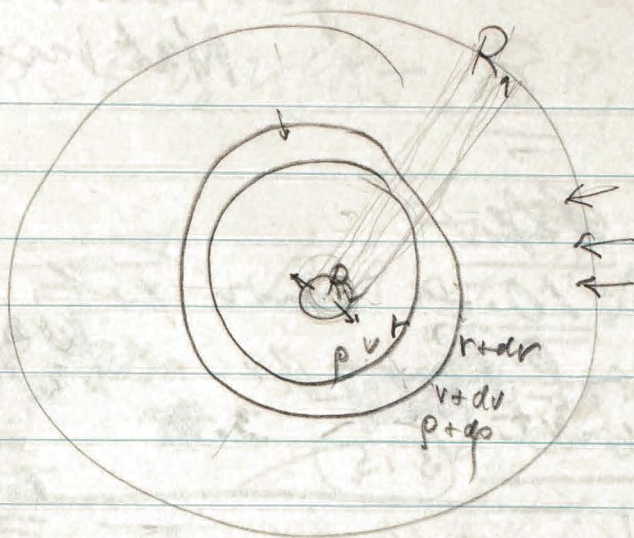 R₁
R
ρ v r
r+dr
v+dv
ρ+dρ